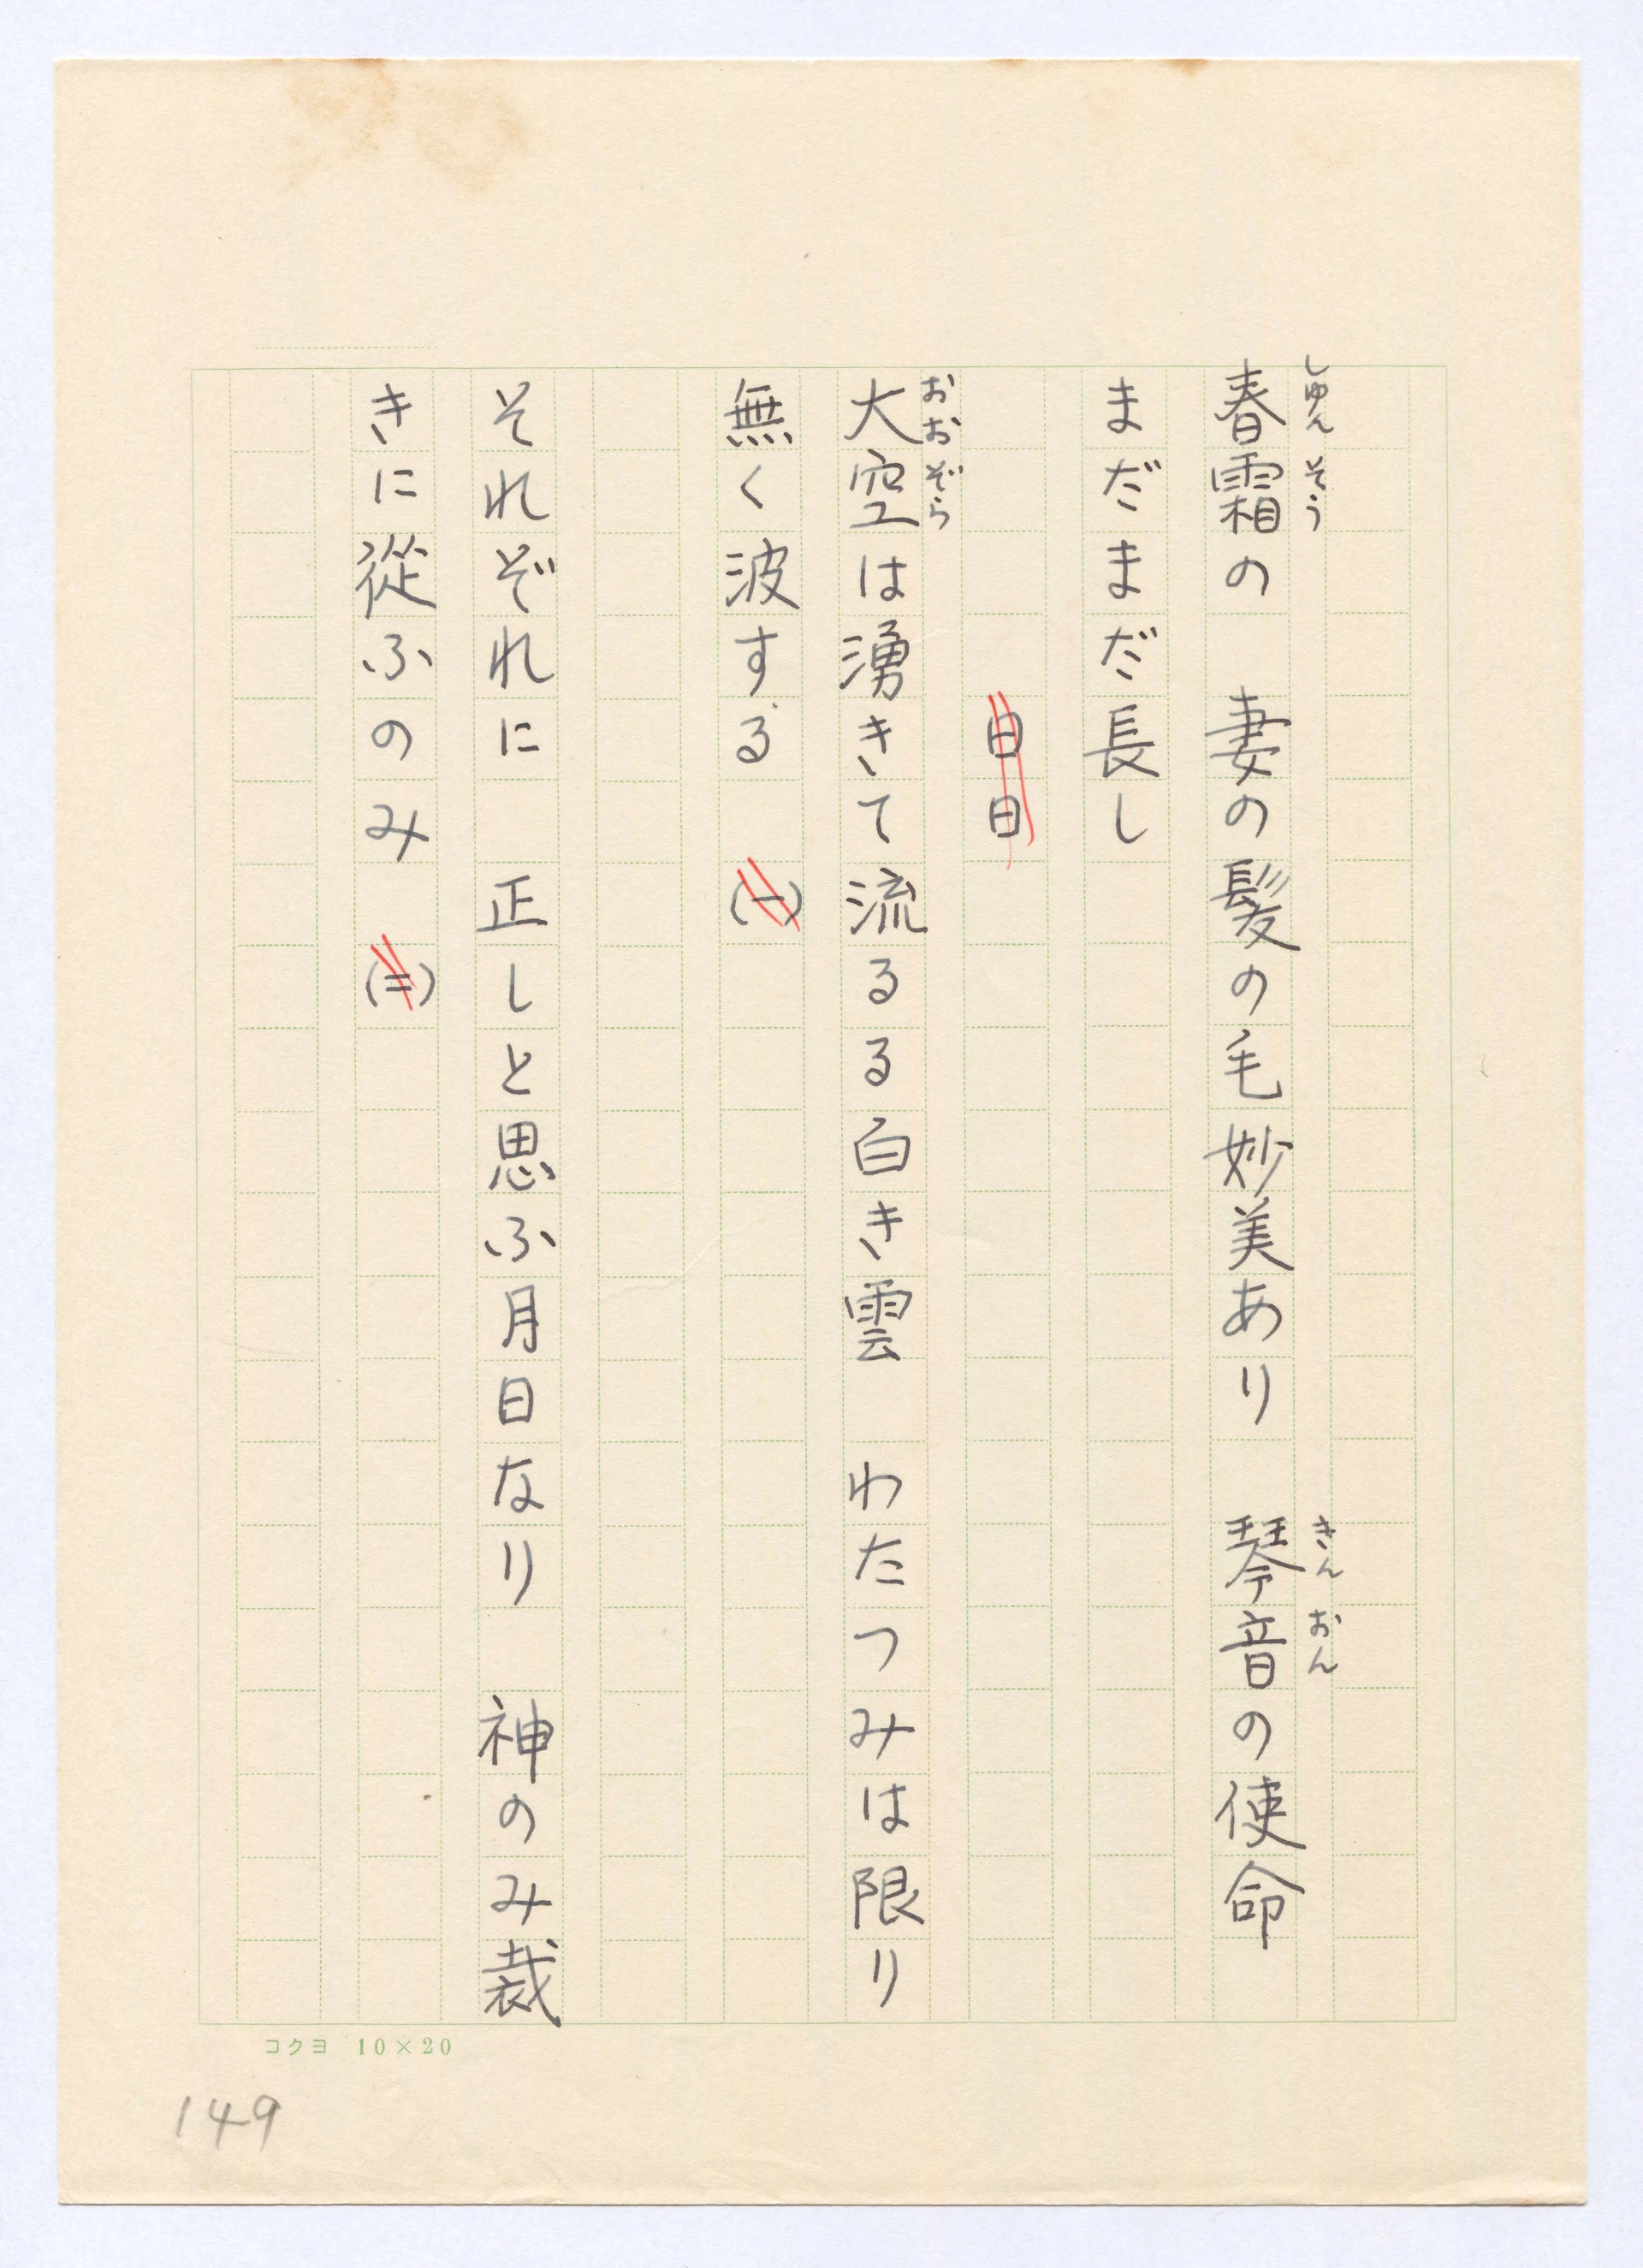 春霜の　妻の髪の毛妙美あり　琴音の使命
しゅんそう
きんおん
まだまだ長し
日日
大空は湧きて流るる白き雲　わたつみは限り
おおぞら
無く波する　(一)
それぞれに　正しと思ふ月日なり　神のみ裁
きに従ふのみ　(二)
コクヨ　10×20
149